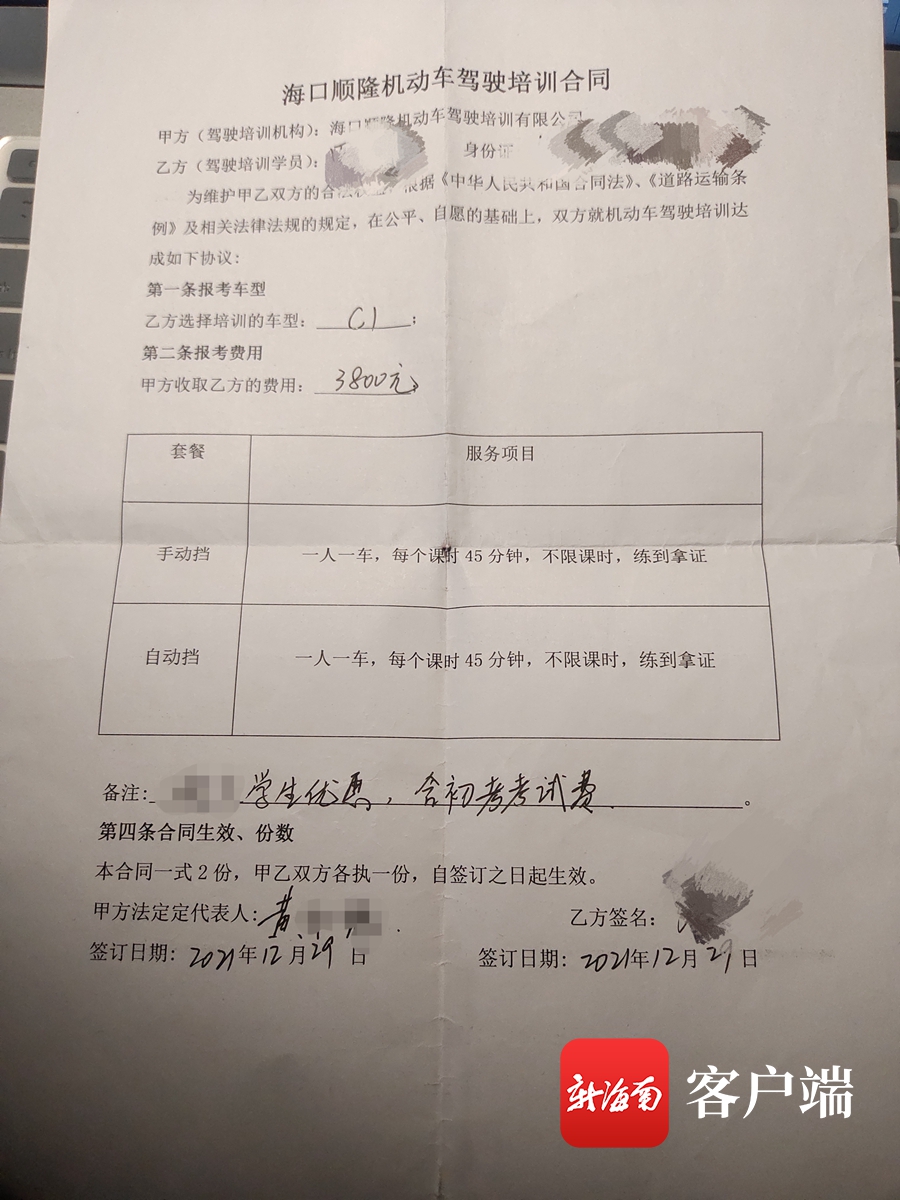 海口顺隆机动车驾驶培训合同
甲方（驾驶培训机构）：海口顺隆机动车驾驶培训有限公司
乙方（驾驶培训学员）： 身份证
为维护甲乙双方的合法权益，根据《中华人民共和国合同法》、《道路运输条
例》及相关法律法规的规定，在公平、自愿的基础上，双方就机动车驾驶培训达
成如下协议：
第一条报考车型
乙方选择培训的车型：C1；
第二条报考费用
甲方收取乙方的费用：3800元；
套餐 服务项目
手动挡 一人一车，每个课时45分钟，不限课时，练到拿证
自动挡 一人一车，每个课时45分钟，不限课时，练到拿证
备注：学生优惠，含初考考试费。
第四条合同生效、份数
本合同一式2份，甲乙双方各执一份，自签订之日起生效。
甲方法定定代表人：黄 乙方签名：
签订日期：2021年12月29日 签订日期：2021年12月29日
新海南 客户端